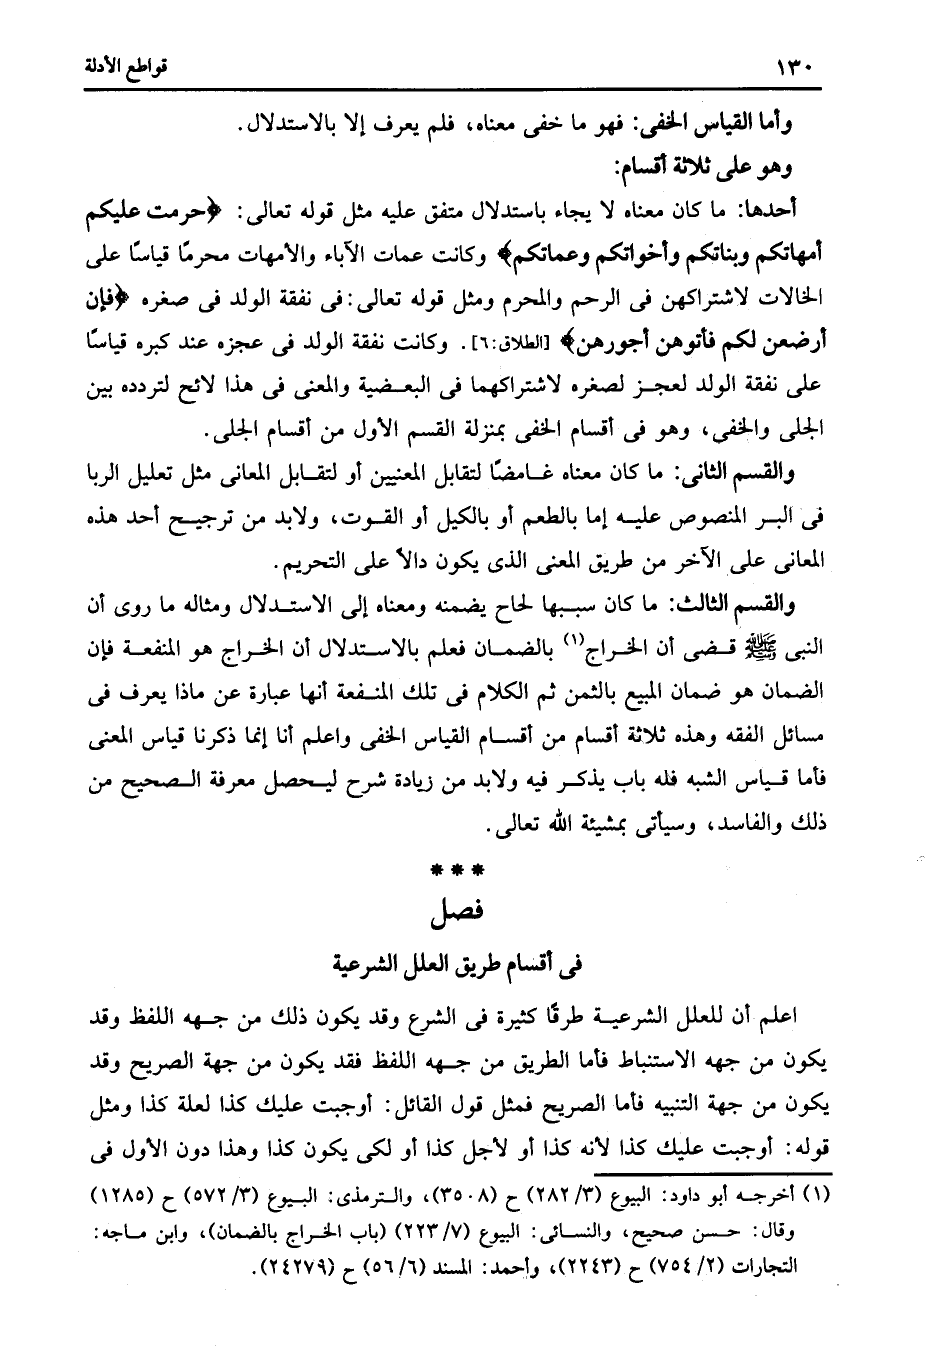 ١٣٠ قواطع الأدلة
وأما القياس الخفى: فهو ما خفى معناه، فلم يعرف إلا بالاستدلال.
وهو على ثلاثة أقسام:
أحدها: ما كان معناه لا يجاء باستدلال متفق عليه مثل قوله تعالى: ﴿حرمت عليكم
أمهاتكم وبناتكم وأخواتكم وعماتكم﴾ وكانت عمات الآباء والأمهات محرمًا قياسًا على
الخالات لاشتراكهن فى الرحم والمحرم ومثل قوله تعالى: فى نفقة الولد فى صغره ﴿فإن
أرضعن لكم فأتوهن أجورهن﴾ [الطلاق:٦]. وكانت نفقة الولد فى عجزه عند كبره قياسًا
على نفقة الولد لعجز لصغره لاشتراكهما فى البعضية والمعنى فى هذا لائح لتردده بين
الجلى والخفى، وهو فى أقسام الخفى بمنزلة القسم الأول من أقسام الجلى.
والقسم الثانى: ما كان معناه غامضًا لتقابل المعنيين أو لتقابل المعانى مثل تعليل الربا
فى البر المنصوص عليه إما بالطعم أو بالكيل أو القوت، ولابد من ترجيح أحد هذه
المعانى على الآخر من طريق المعنى الذى يكون دالاً على التحريم.
والقسم الثالث: ما كان سببها لحاج يضمنه ومعناه إلى الاستدلال ومثاله ما روى أن
النبى ﷺ قضى أن الخراج(١) بالضمان فعلم بالاستدلال أن الخراج هو المنفعة فإن
الضمان هو ضمان المبيع بالثمن ثم الكلام فى تلك المنفعة أنها عبارة عن ماذا يعرف فى
مسائل الفقه وهذه ثلاثة أقسام من أقسام القياس الخفى واعلم أنا إنما ذكرنا قياس المعنى
فأما قياس الشبه فله باب يذكر فيه ولابد من زيادة شرح ليحصل معرفة الصحيح من
ذلك والفاسد، وسيأتى بمشيئة الله تعالى.
* * *
فصل
فى أقسام طريق العلل الشرعية
اعلم أن للعلل الشرعية طرقًا كثيرة فى الشرع وقد يكون ذلك من جهه اللفظ وقد
يكون من جهه الاستنباط فأما الطريق من جهه اللفظ فقد يكون من جهة الصريح وقد
يكون من جهة التنبيه فأما الصريح فمثل قول القائل: أوجبت عليك كذا لعلة كذا ومثل
قوله: أوجبت عليك كذا لأنه كذا أو لأجل كذا أو لكى يكون كذا وهذا دون الأول فى
(١) أخرجه أبو داود: البيوع (٢٨٢/٣) ح (٣٥٠٨)، والترمذى: البيوع (٥٧٢/٣) ح (١٢٨٥)
وقال: حسن صحيح، والنسائى: البيوع (٢٢٣/٧) (باب الخراج بالضمان)، وابن ماجه:
التجارات (٧٥٤/٢) ح (٢٢٤٣)، وأحمد: المسند (٥٦/٦) ح (٢٤٢٧٩).